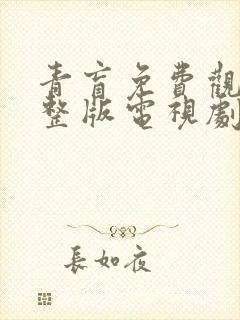 青盲免費觀
整版電視劇
長如夜